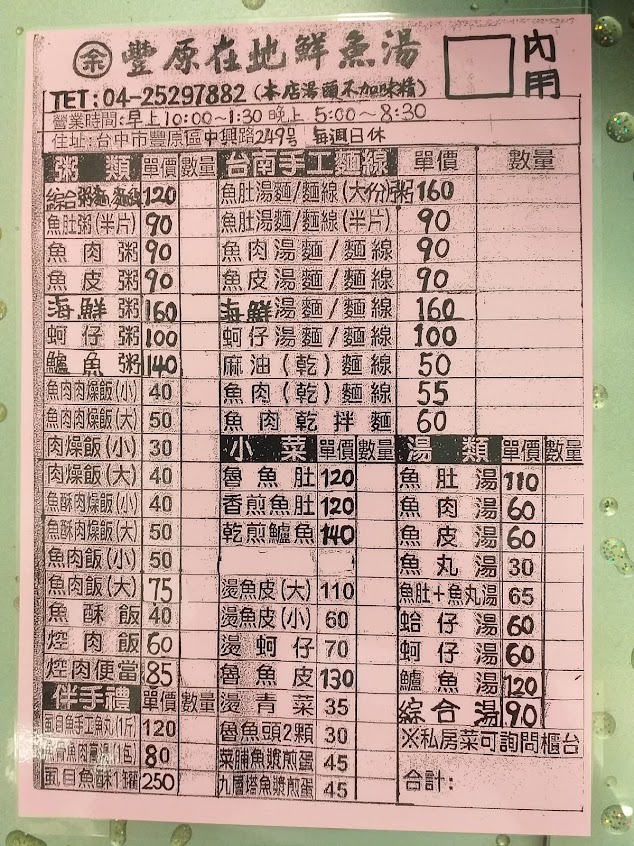 余 豐原在地鮮魚湯 內用
TET:04-25297882(本店湯頭不加味精)
營業時間:早上10:00~1:30晚上 5:00~8:30
住址:台中市豐原區中興路249号 每週日休
粥類 單價 數量 台南手工麵線 單價 數量
綜合粥麵/麵線 120 魚肚湯麵/麵線(大份)粥 160
魚肚粥(半片) 90 魚肚湯麵/麵線(半片) 90
魚肉粥 90 魚肉湯麵/麵線 90
魚皮粥 90 魚皮湯麵/麵線 90
海鮮粥 160 海鮮湯麵/麵線 160
蚵仔粥 100 蚵仔湯麵/麵線 100
鱸魚粥 140 麻油(乾)麵線 50
魚肉肉燥飯(小) 40 魚肉(乾)麵線 55
魚肉肉燥飯(大) 50 魚肉乾拌麵 60
肉燥飯(小) 30 小菜 單價 數量 湯類 單價 數量
肉燥飯(大) 40 魯魚肚 120 魚肚湯 110
魚酥肉燥飯(小) 40 香煎魚肚 120 魚肉湯 60
魚酥肉燥飯(大) 50 乾煎鱸魚 140 魚皮湯 60
魚肉飯(小) 50 魚丸湯 30
魚肉飯(大) 75 燙魚皮(大) 110 魚肚+魚丸湯 65
魚酥飯 40 燙魚皮(小) 60 蛤仔湯 60
焢肉飯 60 燙蚵仔 70 蚵仔湯 60
焢肉便當 85 魯魚皮 130 鱸魚湯 120
伴手禮 單價 數量 燙青菜 35 綜合湯 90
虱目魚手工魚丸(1斤) 120 魯魚頭2顆 30 ※私房菜可詢問櫃台
魚肉 (1包) 80 菜脯魚漿煎蛋 45 合計:
虱目魚酥1罐 250 九層塔魚漿煎蛋 45